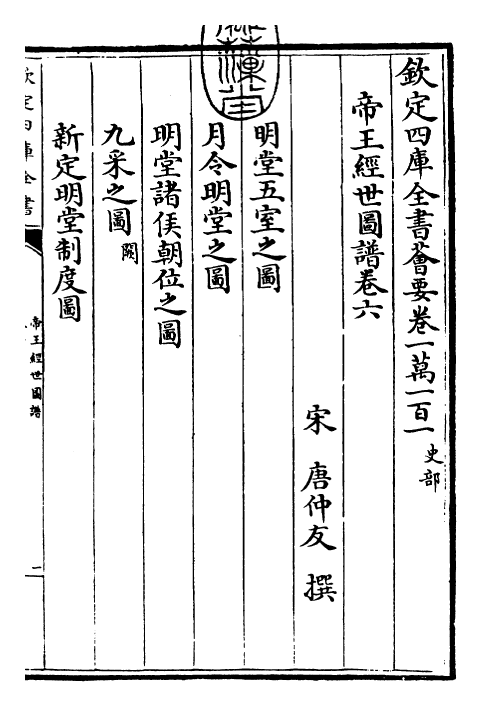 欽定四庫全書薈要卷一萬一百一 史部
帝王經世圖譜卷六
宋 唐仲友 撰
明堂五室之圖
月令明堂之圖
明堂諸侯朝位之圖
九采之圖 闕
新定明堂制度圖
欽定四庫全書
帝王經世圖譜
一